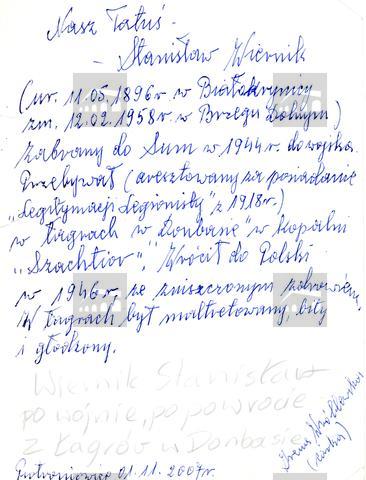 Nasz Tatuś -
- Stanisław Wiernik
(ur. 11.05.1896r. w Białokrynicy
zm. 12.02.1958r. w Brzegu Dolnym)
Zabrany do Sum w 1944r. do wojska.
Przebywał (aresztowany za posiadanie
"Legitymacji Legionisty" z 1918r.)
w łagrach w "Donbasie" w kopalni
"Szachtior". Wrócił do Polski
w 1946r. ze zniszczonym zdrowiem.
W łagrach był maltretowany, bity
i głodzony.
Wiernik Stanisław
po wojnie, po powrocie
z łagrów w Donbasie
01.11.2007r.
(córka)